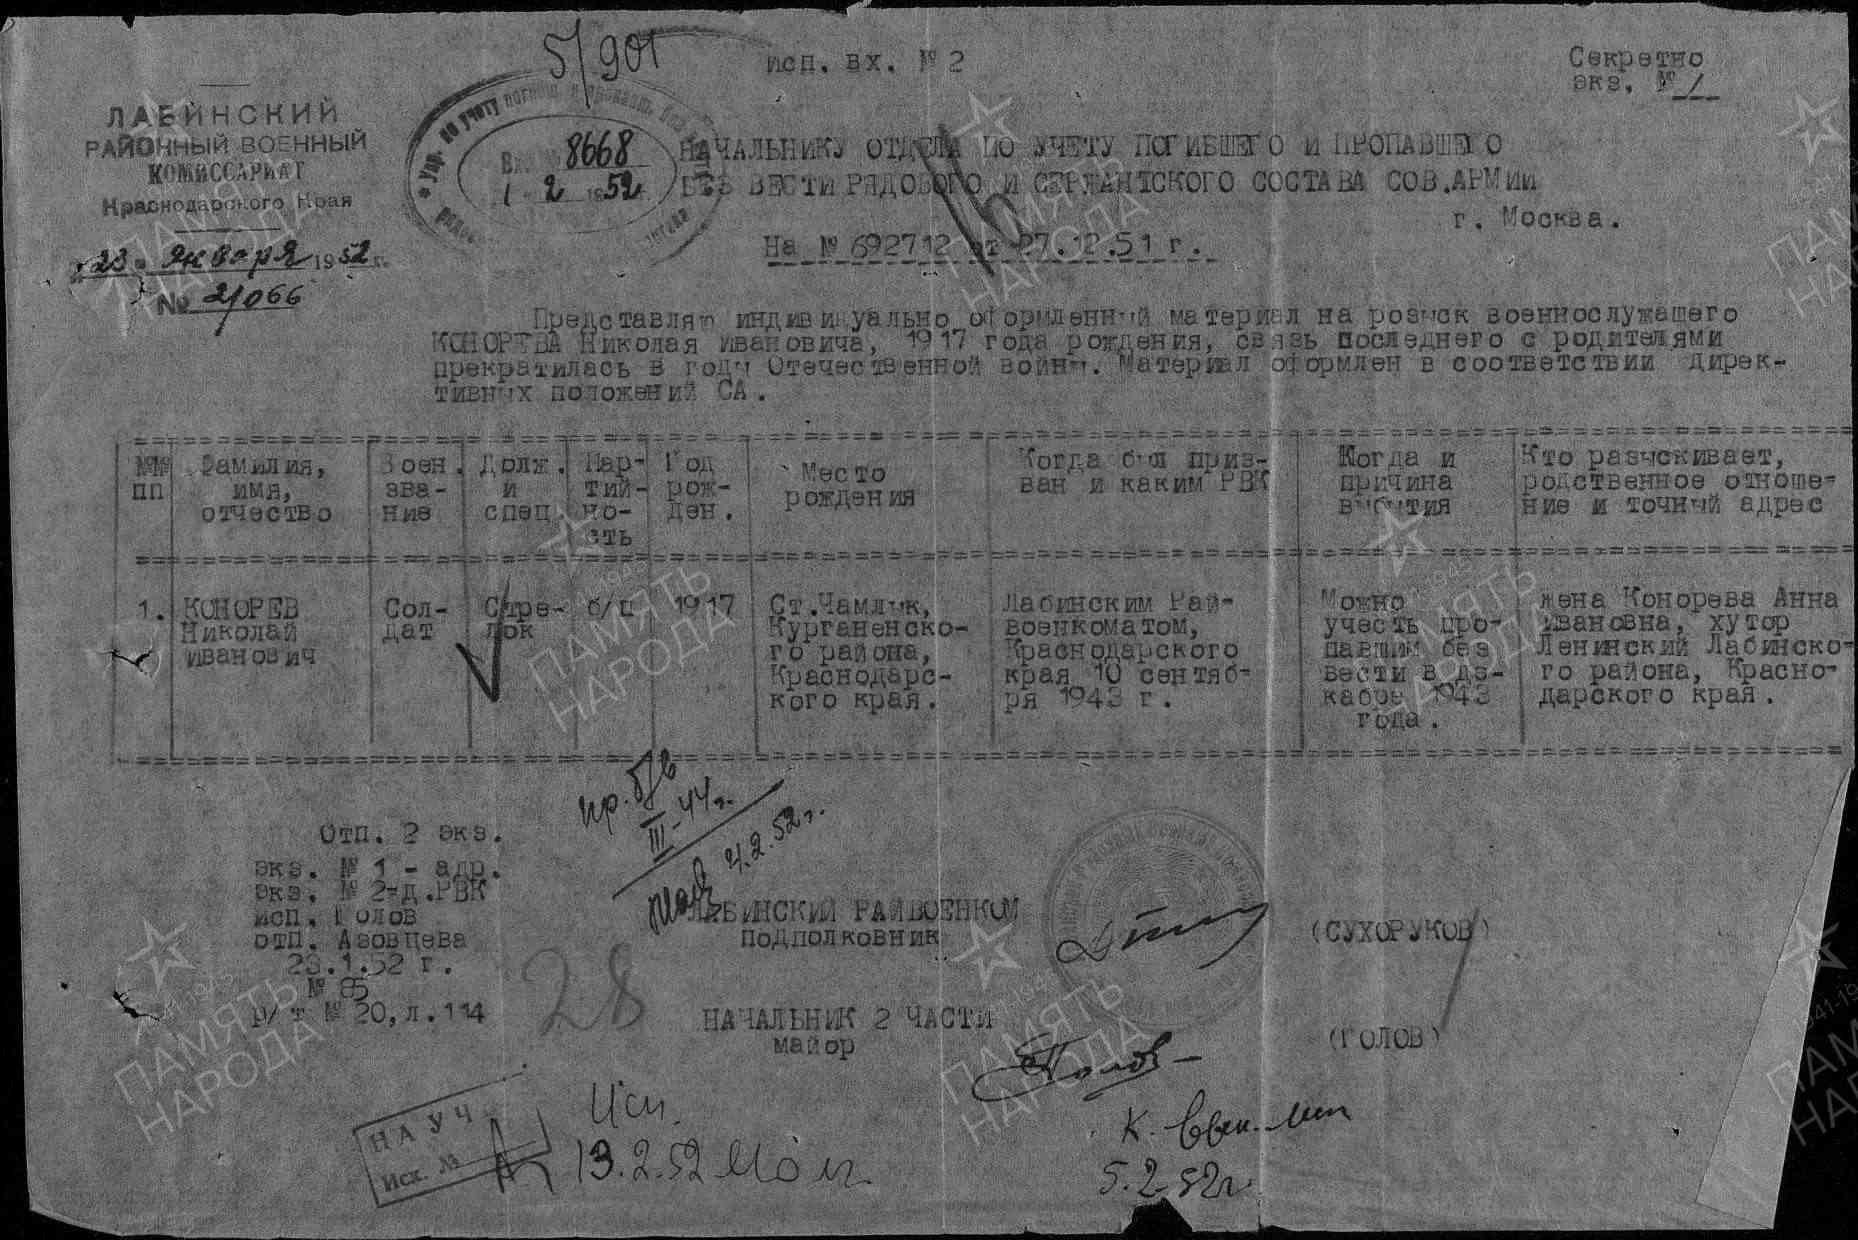 5/901
исп. вх. № 2
Секретно
экз. № 1
ЛАБИНСКИЙ
РАЙОННЫЙ ВОЕННЫЙ
КОМИССАРИАТ
Краснодарского Края
"23" января 1952 г.
№ 2/066
Упр. по учету погибш. и пропавш. без
Вх. № 8668
1 2 1952 г.
НАЧАЛЬНИКУ ОТДЕЛА ПО УЧЕТУ ПОГИБШЕГО И ПРОПАВШЕГО
БЕЗ ВЕСТИ РЯДОВОГО И СЕРЖАНТСКОГО СОСТАВА СОВ.АРМИИ
г. Москва.
На № 692712 от 27.12.51 г.
Представляю индивидуально оформленный материал на розыск военнослужащего
КОНОРЕВА Николая Ивановича, 1917 года рождения, связь последнего с родителями
прекратилась в годы Отечественной войны. Материал оформлен в соответствии дирек-
тивных положений СА.
№№ пп
Фамилия, имя, отчество
Воен. зва- ние
Долж. и спец.
Пар- тий- но- сть
Год рож- ден.
Место рождения
Когда был приз- ван и каким РВК
Когда и причина выбытия
Кто разыскивает, родственное отноше- ние и точный адрес
1.
КОНОРЕВ
Николай
Иванович
Сол-
дат
Стре-
лок
б/п
1917
Ст.Чамлык,
Курганенско-
го района,
Краснодарс-
кого края.
Лабинским Рай-
военкоматом,
Краснодарского
края 10 сентяб-
ря 1943 г.
Можно
учесть про-
павшим без
вести в де-
кабре 1943
года.
жена Конорева Анна
Ивановна, хутор
Ленинский Лабинско-
го района, Красно-
дарского края.
пр. б/в
III-44 г.
4.2.52 г.
Отп. 2 экз.
экз. № 1 - адр.
экз. № 2-д.РВК
исп. Голов
отп. Азовцева
23.1.52 г.
№ 85
р/т № 20,л.114
28
ЛАБИНСКИЙ РАЙВОЕНКОМ
подполковник
(СУХОРУКОВ)
НАЧАЛЬНИК 2 ЧАСТИ
майор
(ГОЛОВ)
НАУЧ
Исх. №
Исп.
13.2.52
5.2.52г.
ПАМЯТЬ
НАРОДА